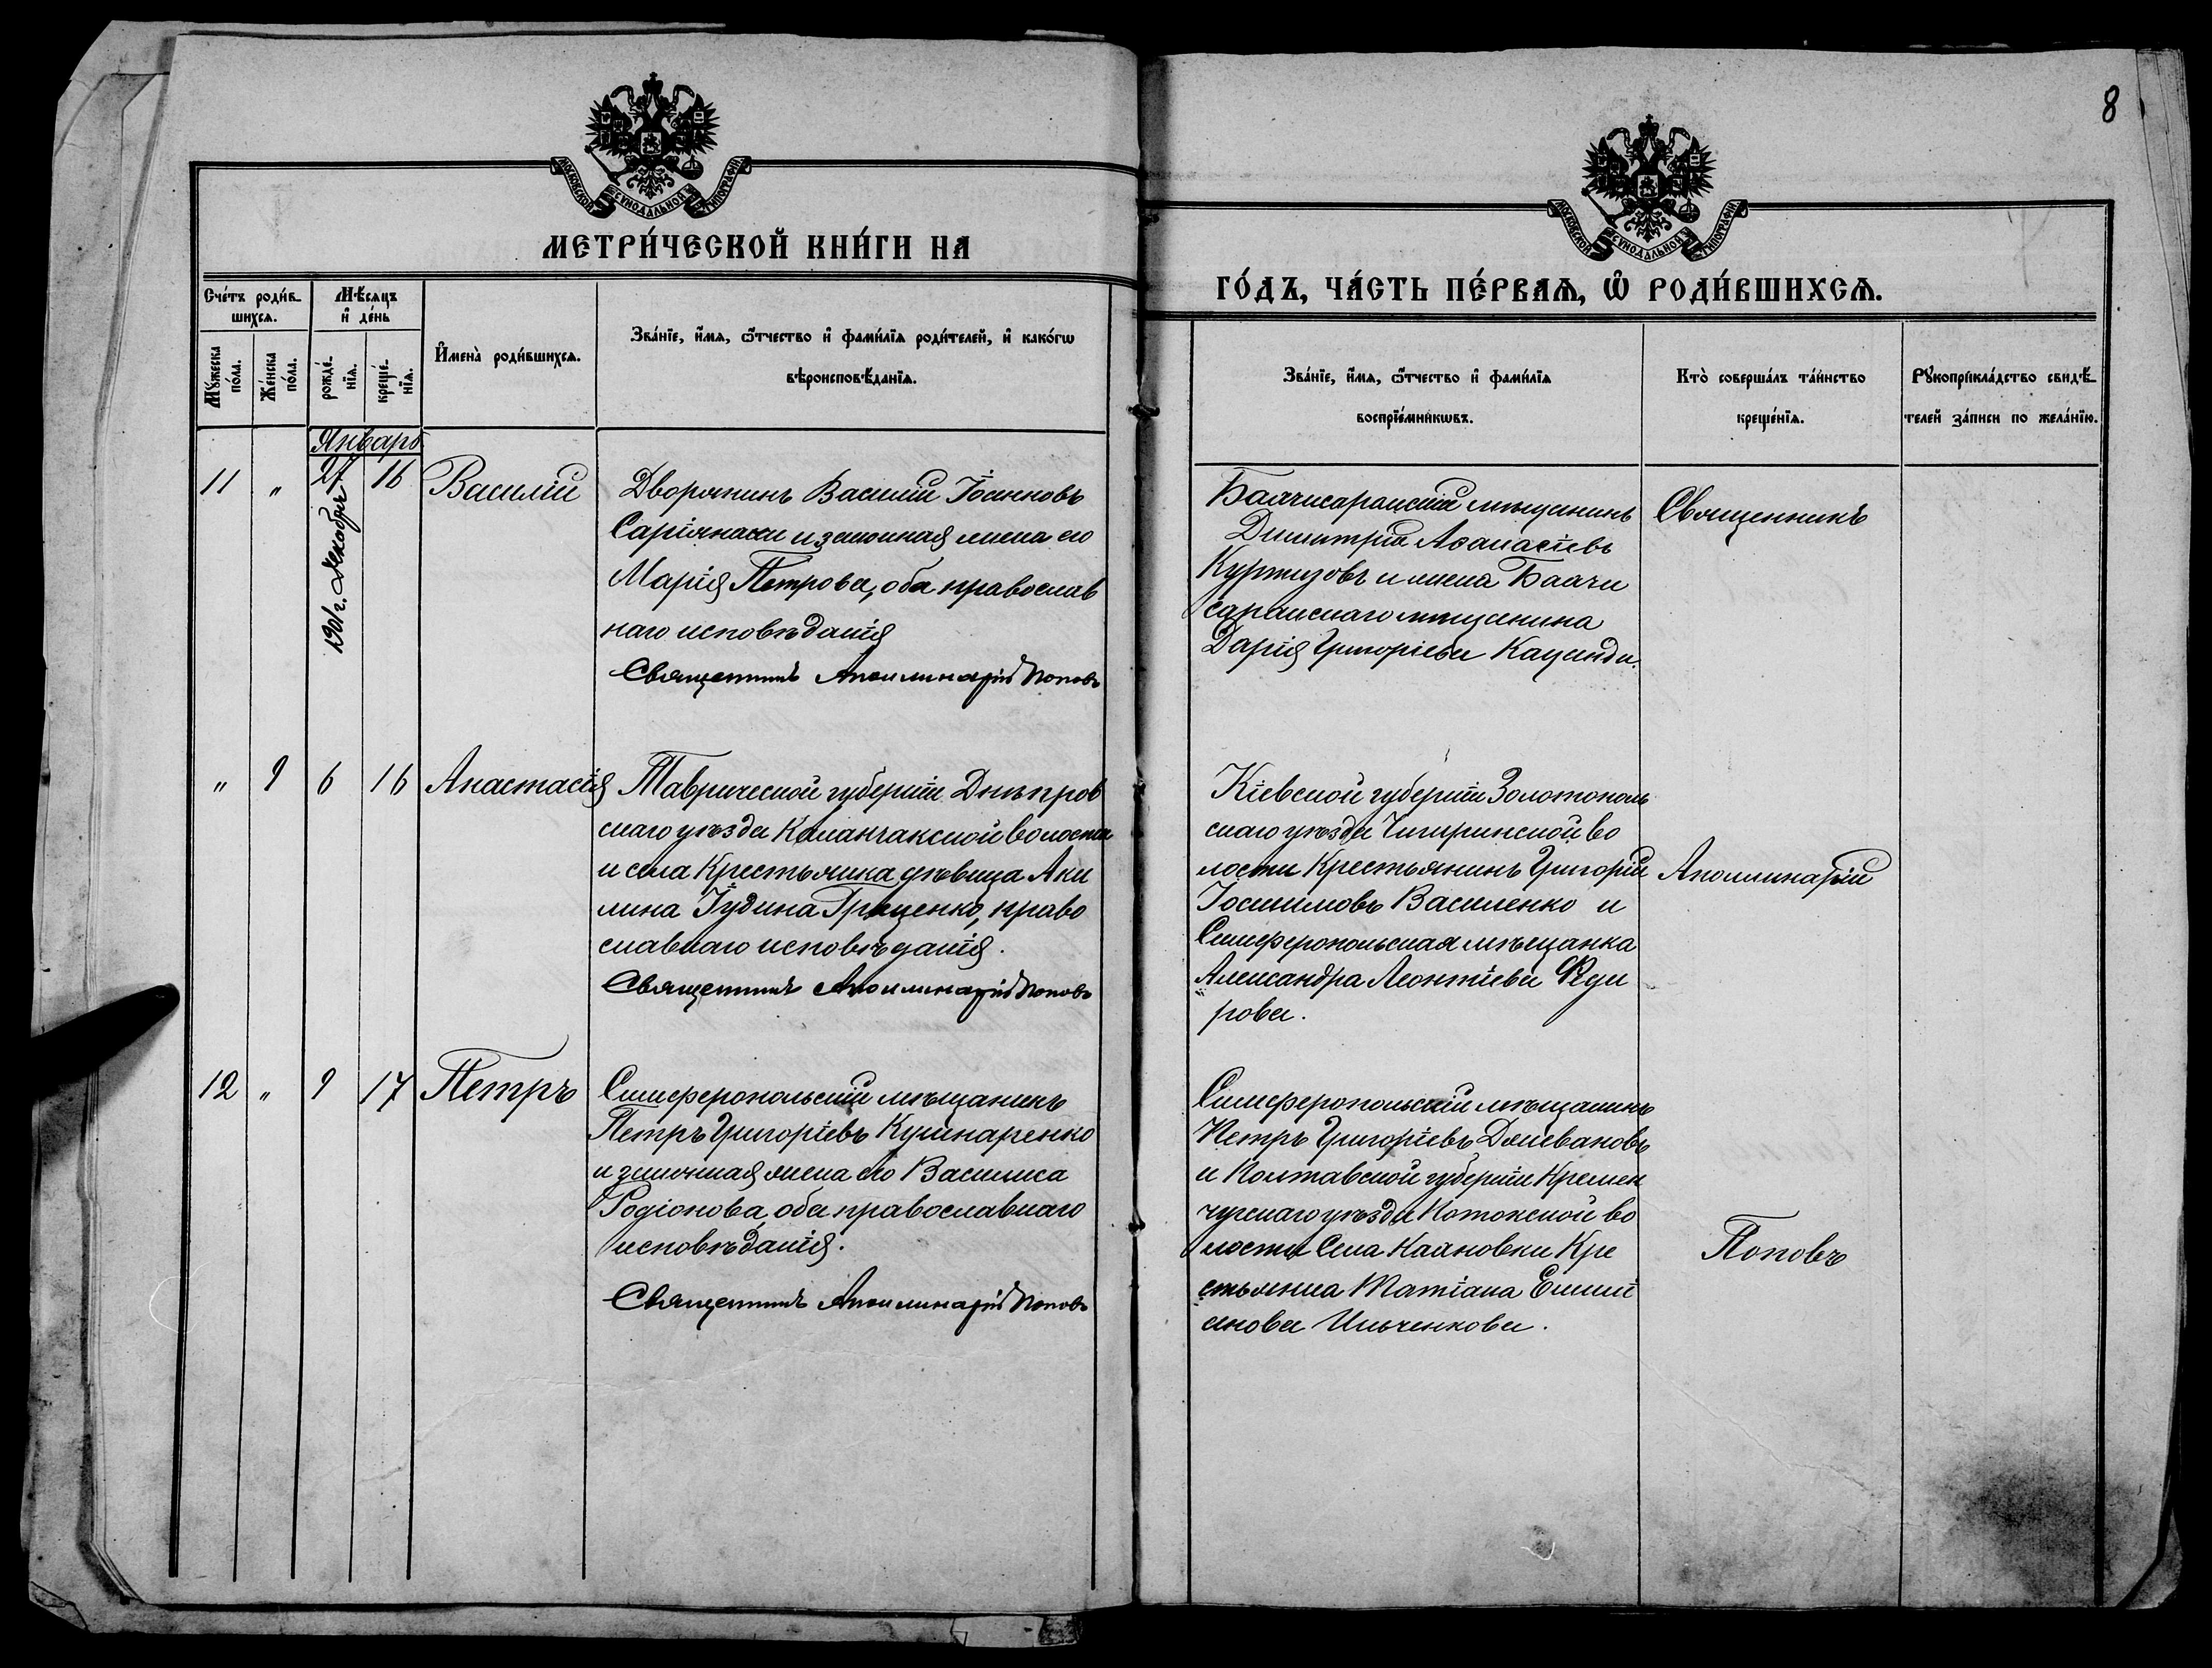 8
МОСКОВСКОЙ СѴНОДАЛЬНОЙ ТИПОГРАФІИ
МЕТРИ́ЧЕСКОЙ КНИ́ГИ НА
МОСКОВСКОЙ СѴНОДАЛЬНОЙ ТИПОГРАФІИ
ГО́ДЪ, ЧА́СТЬ ПЕ́РВАѦ, Ѡ РОДИ́ВШИХСѦ.
Сче́тъ роди́в-
шихсѧ.
Мѣ́сѧцъ
и де́нь
Мꙋ́жеска
по́ла.
Же́нска
по́ла.
рожде́-
нїѧ.
креще́-
нїѧ.
Имена̀ роди́вшихсѧ.
Зва́нїе, и́мѧ, ѻ́тчество и фами́лїѧ роди́телей, и како́гѡ
вѣроисповѣ́данїѧ.
Зва́нїе, и́мѧ, ѻ́тчество и фами́лїѧ
воспрїе́мникѡвъ.
Кто̀ соверша́лъ та́инство
креще́нїѧ.
Рꙋкоприкла́дство свидѣ́-
телей за́писи по жела́нїю.
Январь
11 " 27 16 Василій
1901 г. Декабря
Дворянинъ Василій Іоанновъ
и законная жена его
Марія Петрова, оба православ
наго исповѣданія
Священникъ Аполлинарій Поповъ
Бахчисарайскій мѣщанинъ
Димитрій Аѳанасіевъ
Куртизовъ и жена Бахчи
сарайскаго мѣщанина
Дарія Григоріева
Священникъ
" 9 6 16 Анастасія
Таврической губерніи Днѣпров
скаго уѣзда Каланчакской волости
и села Крестьянка дѣвица Аки
лина Іудина Гриценко, право
славнаго исповѣданія.
Священникъ Аполлинарій Поповъ
Кіевской губерніи Золотонош
скаго уѣзда Чигринской во
лости Крестьянинъ Григорій
Василенко и
Симферопольская мѣщанка
Александра Леонтіева
рова.
Аполлинарій
12 " 9 17 Петръ
Симферопольскій мѣщанинъ
Петръ Григоріевъ Кушнаренко
и законная жена его Василиса
Родіонова, оба православнаго
исповѣданія.
Священникъ Аполлинарій Поповъ
Симферопольскій мѣщанинъ
Петръ Григоріевъ
и Полтавской губерніи Кремен
чугскаго уѣзда Потокской во
лости Села Кре
стьянка Татіана Емилі
анова Ильченкова.
Поповъ